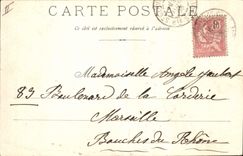 CARTE POSTALE
Ce côté est exclusivement réservé à l'adresse
Mademoiselle Angèle Jaubert
83 Boulevard de la Corderie
Marseille
Bouches du Rhône